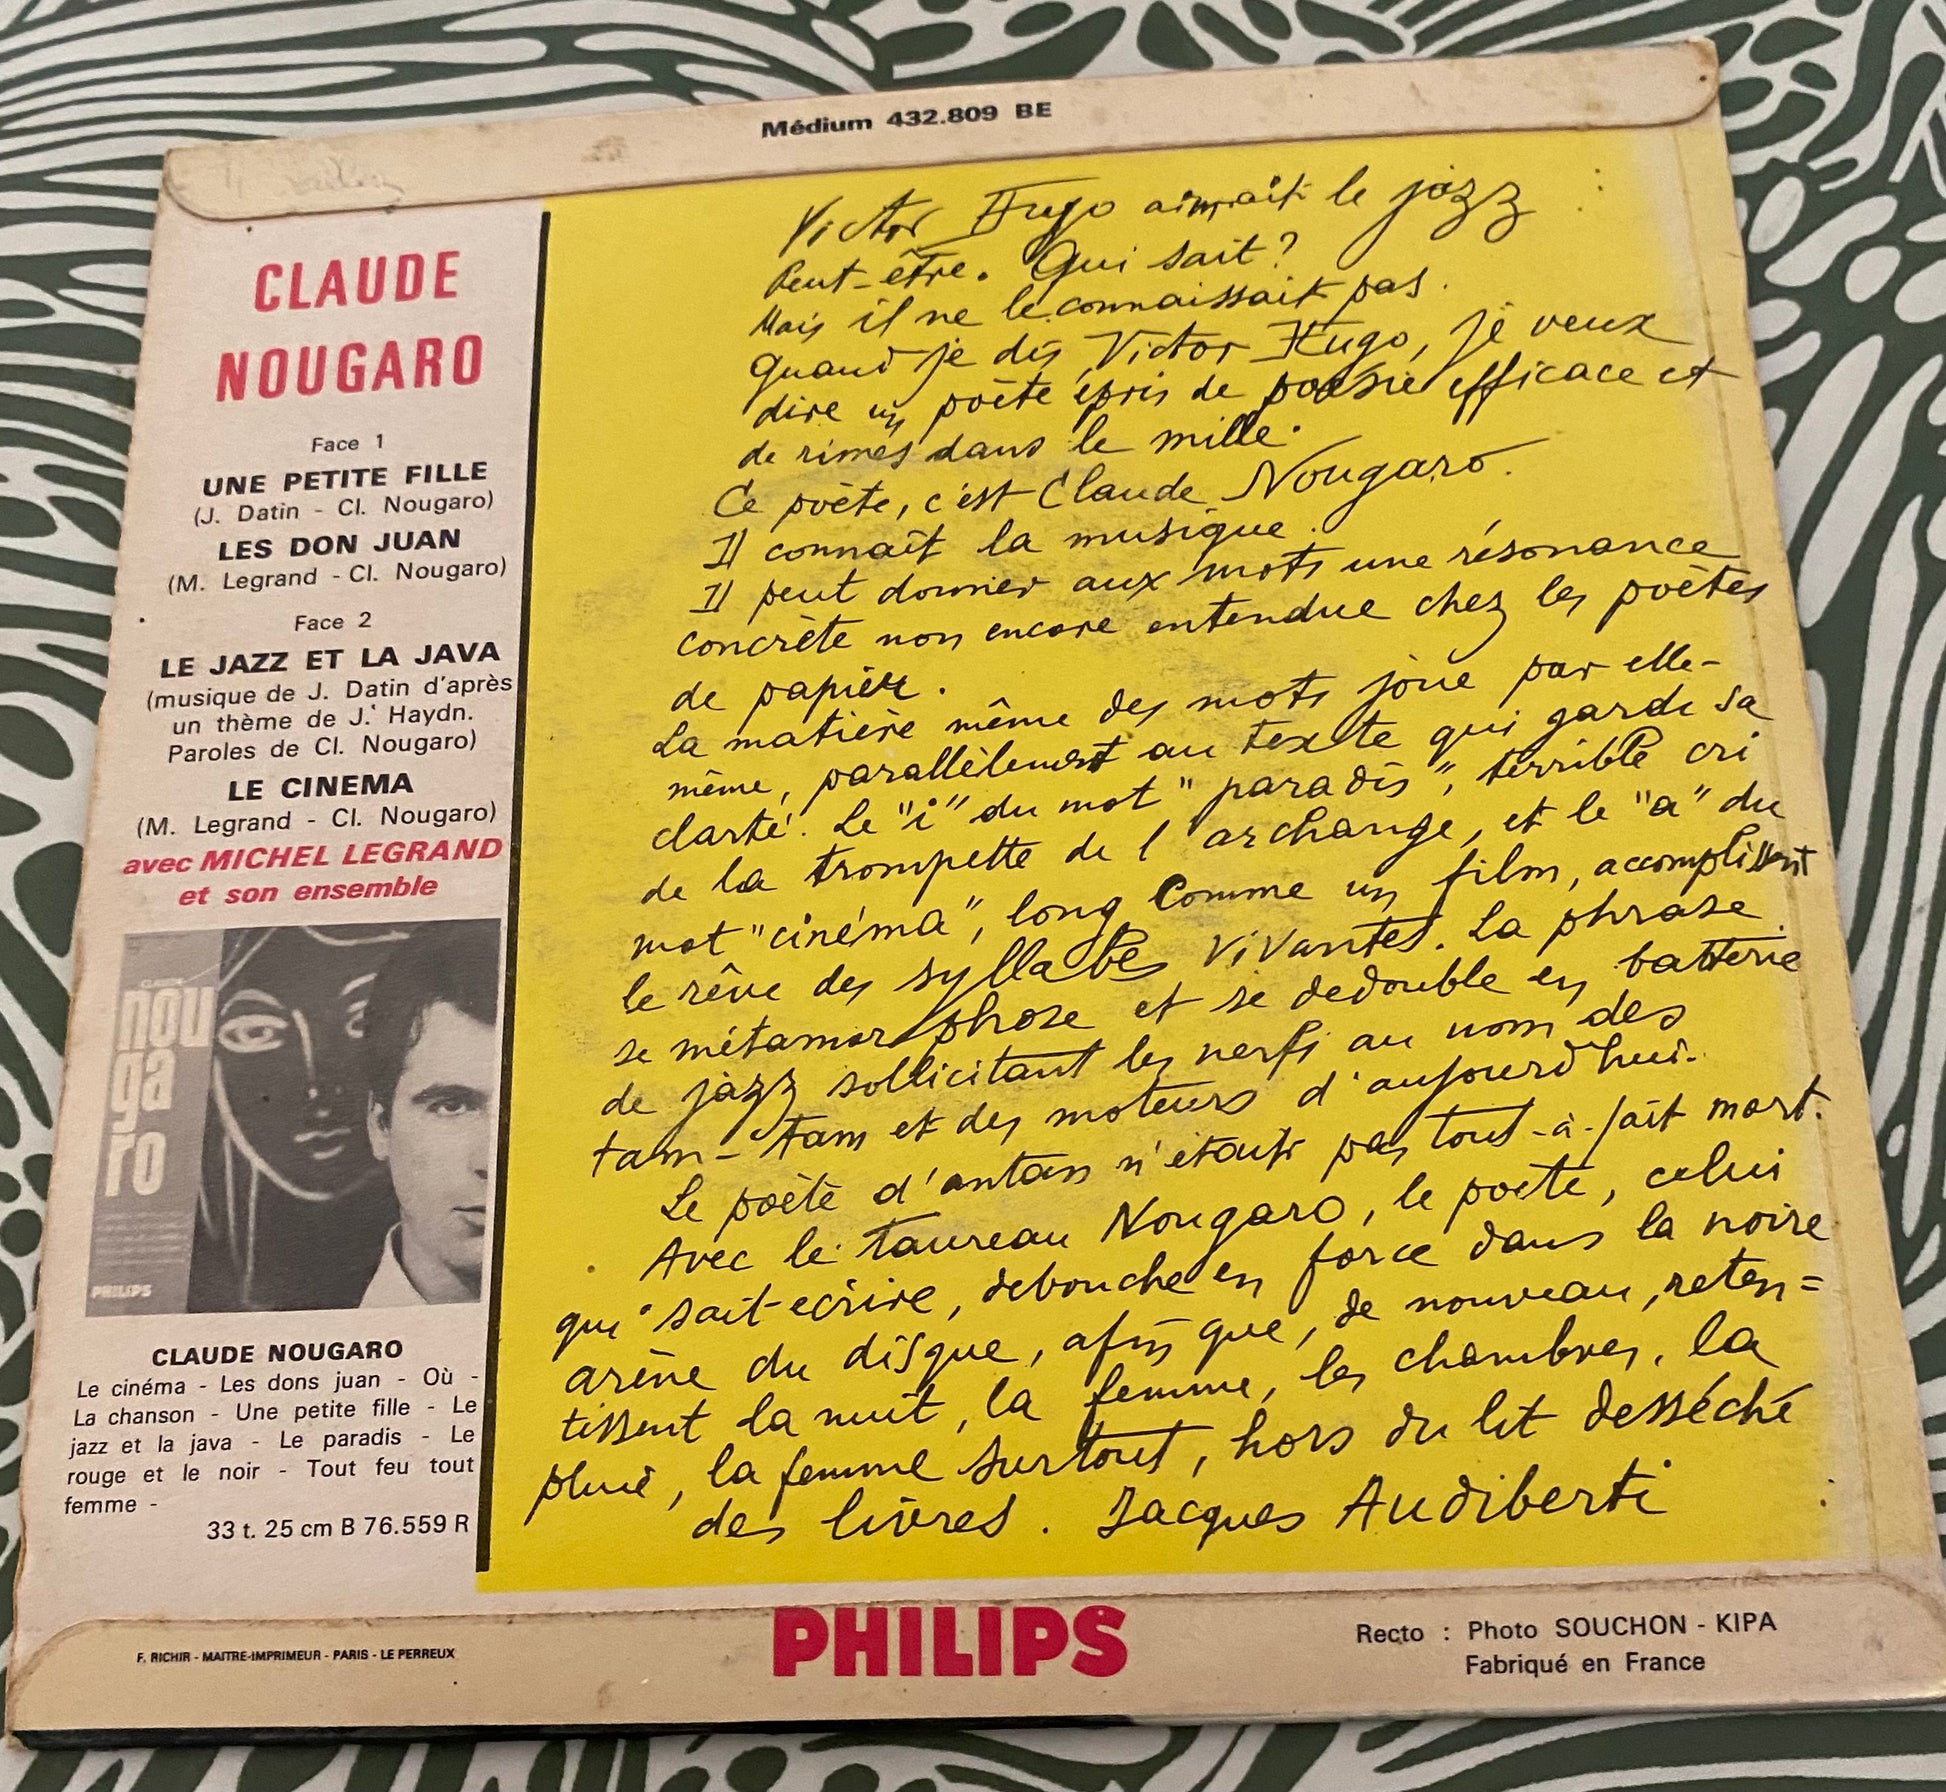 Médium 432.809 BE
CLAUDE
NOUGARO
Face 1
UNE PETITE FILLE
(J. Datin - Cl. Nougaro)
LES DON JUAN
(M. Legrand - Cl. Nougaro)
Face 2
LE JAZZ ET LA JAVA
(musique de J. Datin d'après
un thème de J. Haydn.
Paroles de Cl. Nougaro)
LE CINEMA
(M. Legrand - Cl. Nougaro)
avec MICHEL LEGRAND
et son ensemble
nou
ga
ro
PHILIPS
CLAUDE NOUGARO
Le cinéma - Les dons juan - Où -
La chanson - Une petite fille - Le
jazz et la java - Le paradis - Le
rouge et le noir - Tout feu tout
femme -
33 t. 25 cm B 76.559 R
Victor Hugo aimait le jazz
Peut-être. Qui sait?
Mais il ne le connaissait pas.
Quand je dis Victor Hugo, je veux
dire un poète épris de poésie efficace et
de rimes dans le mille.
Ce poète, c'est Claude Nougaro.
Il connaît la musique.
Il peut donner aux mots une résonance
concrète non encore entendue chez les poètes
de papier.
La matière même des mots joue par elle-
même, parallèlement au texte qui garde sa
clarté. Le "i" du mot "paradis", terrible cri
de la trompette de l'archange, et le "a" du
mot "cinéma", long comme un film, accomplissent
le rêve des syllabes vivantes. La phrase
se métamorphose et se dedouble en batterie
de jazz sollicitant les nerfs au nom des
tam-tam et des moteurs d'aujourd'hui.
Le poète d'antan n'était pas tout-à-fait mort.
Avec le taureau Nougaro, le poète, celui
qui sait ecrire, debouche en force dans la noire
arène du disque, afin que, de nouveau, reten=
tissent la nuit, la femme, les chambres, la
pluie, la femme surtout, hors du lit desséché
des livres. Jacques Audiberti
F. RICHIR - MAITRE-IMPRIMEUR - PARIS - LE PERREUX
PHILIPS
Recto : Photo SOUCHON - KIPA
Fabriqué en France